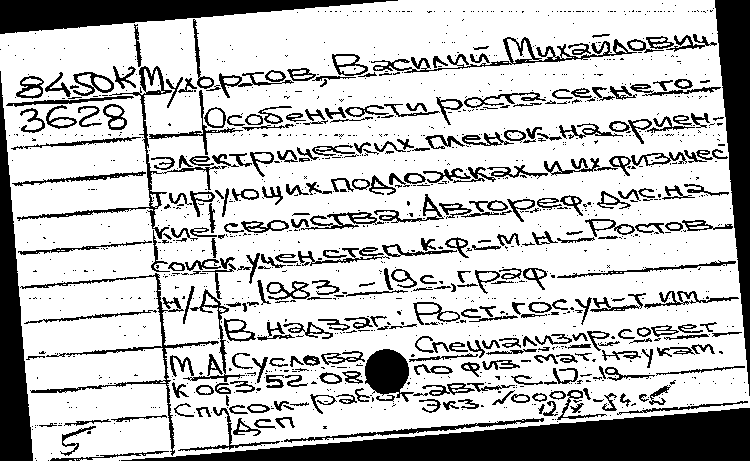 8450К Мухортов, Василий Михайлович.
3628 Особенности роста сегнето-
электрических пленок на ориен-
тирующих подложках и их физичес
кие свойства: Автореф. дис. на
соиск учен. степ. к.ф.-м.н. - Ростов
н/Д., 1983. - 19 с., граф.
В надзаг.: Рост. гос. ун-т им.
М.А. Суслова. Специализир. совет
К 063.52.08 по физ.-мат. наукам.
Список работ авт.: с 17-19
ДСП. Экз. №00001
12/X-84
5